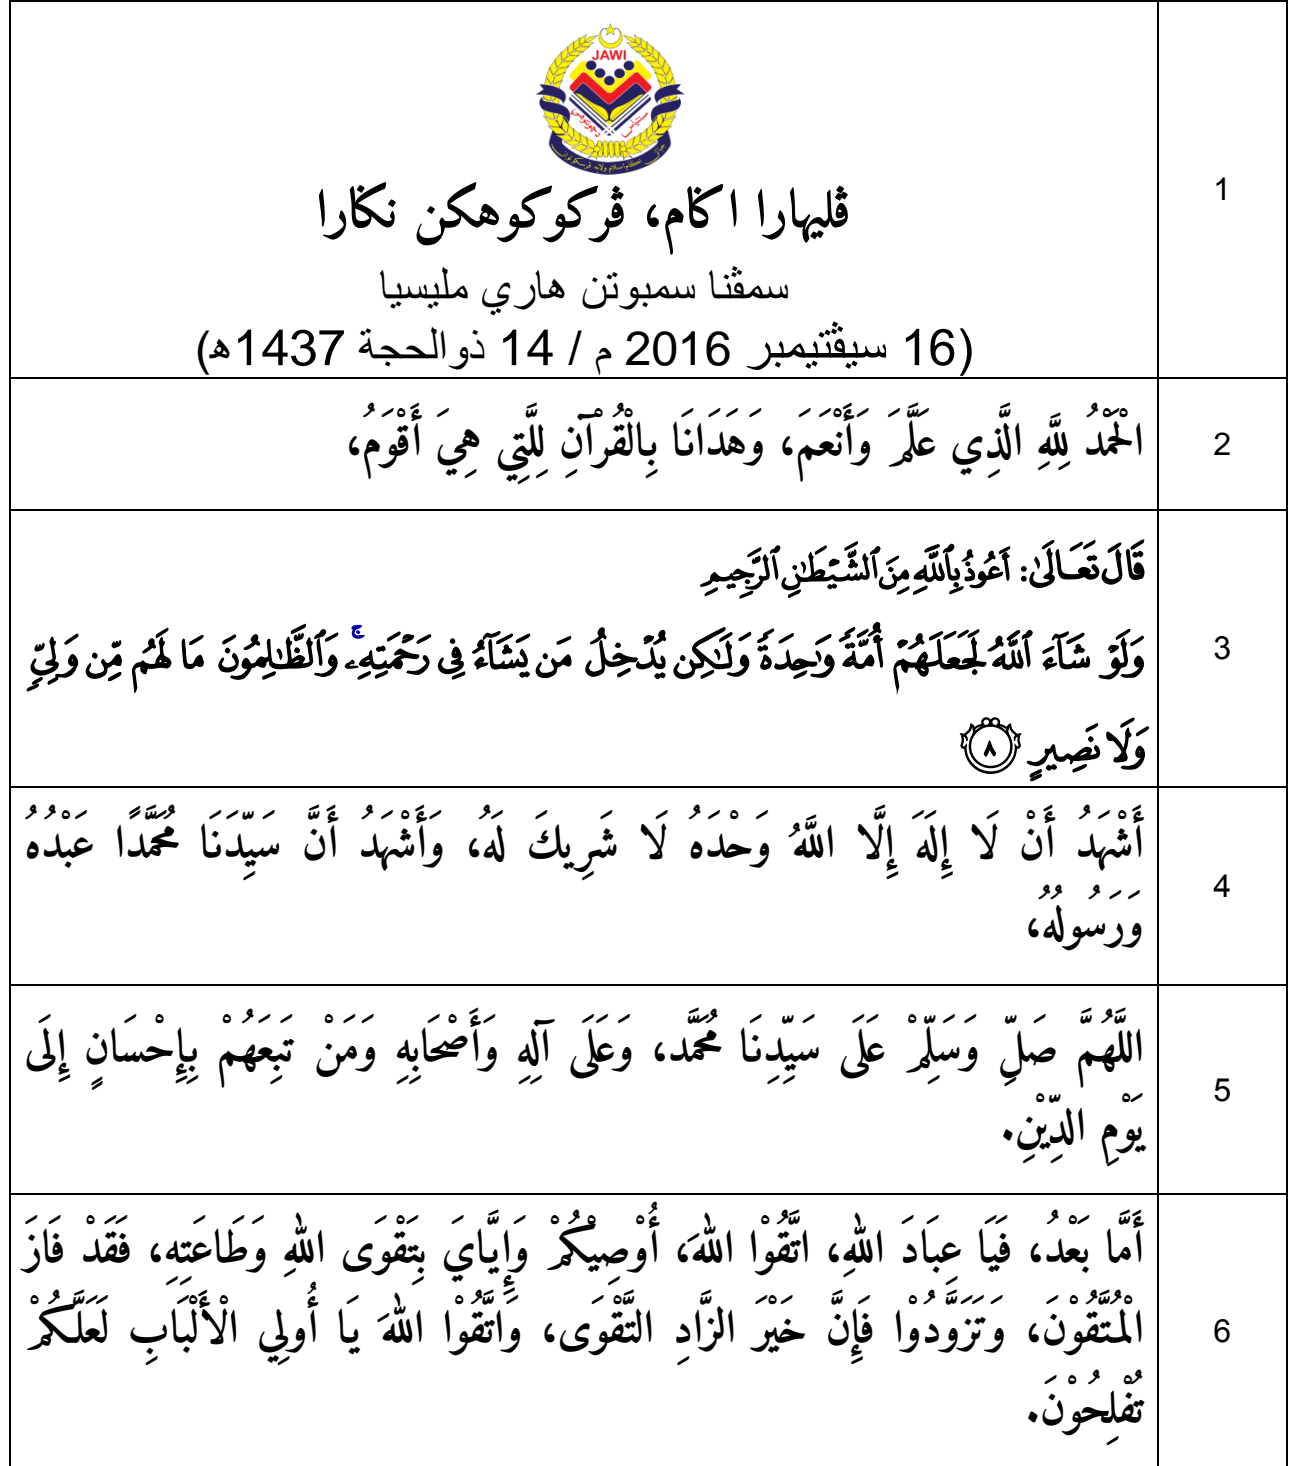 JAWI
ڤليهارا اݢام، ڤركوكوهكن نݢارا
سمڤنا سمبوتن هاري مليسيا
(16 سيڤتيمبر 2016 م / 14 ذوالحجة 1437هـ)
1
الْحَمْدُ لِلَّهِ الَّذِي عَلَّمَ وَأَنْعَمَ، وَهَدَانَا بِالْقُرْآنِ لِلَّتِي هِيَ أَقْوَمُ،
2
قَالَ تَعَالَىٰ: أَعُوذُ بِٱللَّهِ مِنَ ٱلشَّيْطَٰنِ ٱلرَّجِيمِ
وَلَوْ شَآءَ ٱللَّهُ لَجَعَلَهُمْ أُمَّةً وَٰحِدَةً وَلَٰكِن يُدْخِلُ مَن يَشَآءُ فِى رَحْمَتِهِۦۚ وَٱلظَّٰلِمُونَ مَا لَهُم مِّن وَلِىٍّ
وَلَا نَصِيرٍ ٨
3
أَشْهَدُ أَنْ لَا إِلَهَ إِلَّا اللَّهُ وَحْدَهُ لَا شَرِيكَ لَهُ، وَأَشْهَدُ أَنَّ سَيِّدَنَا مُحَمَّدًا عَبْدُهُ
وَرَسُولُهُ،
4
اللَّهُمَّ صَلِّ وَسَلِّمْ عَلَى سَيِّدِنَا مُحَمَّد، وَعَلَى آلِهِ وَأَصْحَابِهِ وَمَنْ تَبِعَهُمْ بِإِحْسَانٍ إِلَى
يَوْمِ الدِّيْنِ.
5
أَمَّا بَعْدُ، فَيَا عِبَادَ اللهِ، اتَّقُوْا اللهَ، أُوْصِيْكُمْ وَإِيَّايَ بِتَقْوَى اللهِ وَطَاعَتِهِ، فَقَدْ فَازَ
الْمُتَّقُوْنَ، وَتَزَوَّدُوْا فَإِنَّ خَيْرَ الزَّادِ التَّقْوَى، وَاتَّقُوْا اللهَ يَا أُولِي الْأَلْبَابِ لَعَلَّكُمْ
تُفْلِحُوْنَ.
6